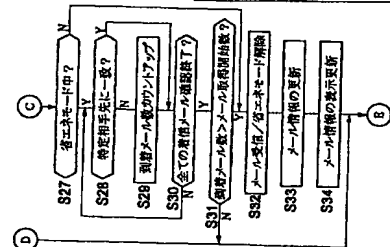 C
D
S27 省エネモード中? N
Y
S28 特定相手先に一致? Y
N
S29 到着メール数カウントアップ
S30 全ての着信メール確認終了?
N Y
S31 到着メール数>メール取得開始数? N
Y
S32 メール受信/省エネモード解除
S33 メール情報の更新
S34 メール情報の表示更新
B